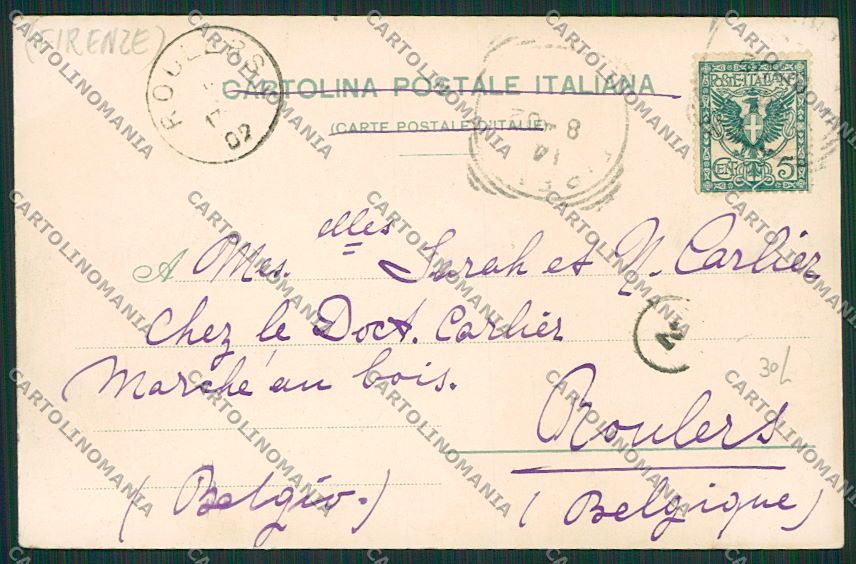 (FIRENZE)
ROULERS
02
CARTOLINA POSTALE ITALIANA
(CARTE POSTALE D'ITALIE)
POSTE ITALIANE
CENT. 5
8
14
A Mes.elles Sarah et N. Carlier
Chez le Doct. Carlier
Marché au bois.
Roulers
(Belgio.)
(Belgique)
30L
CARTOLINOMANIA